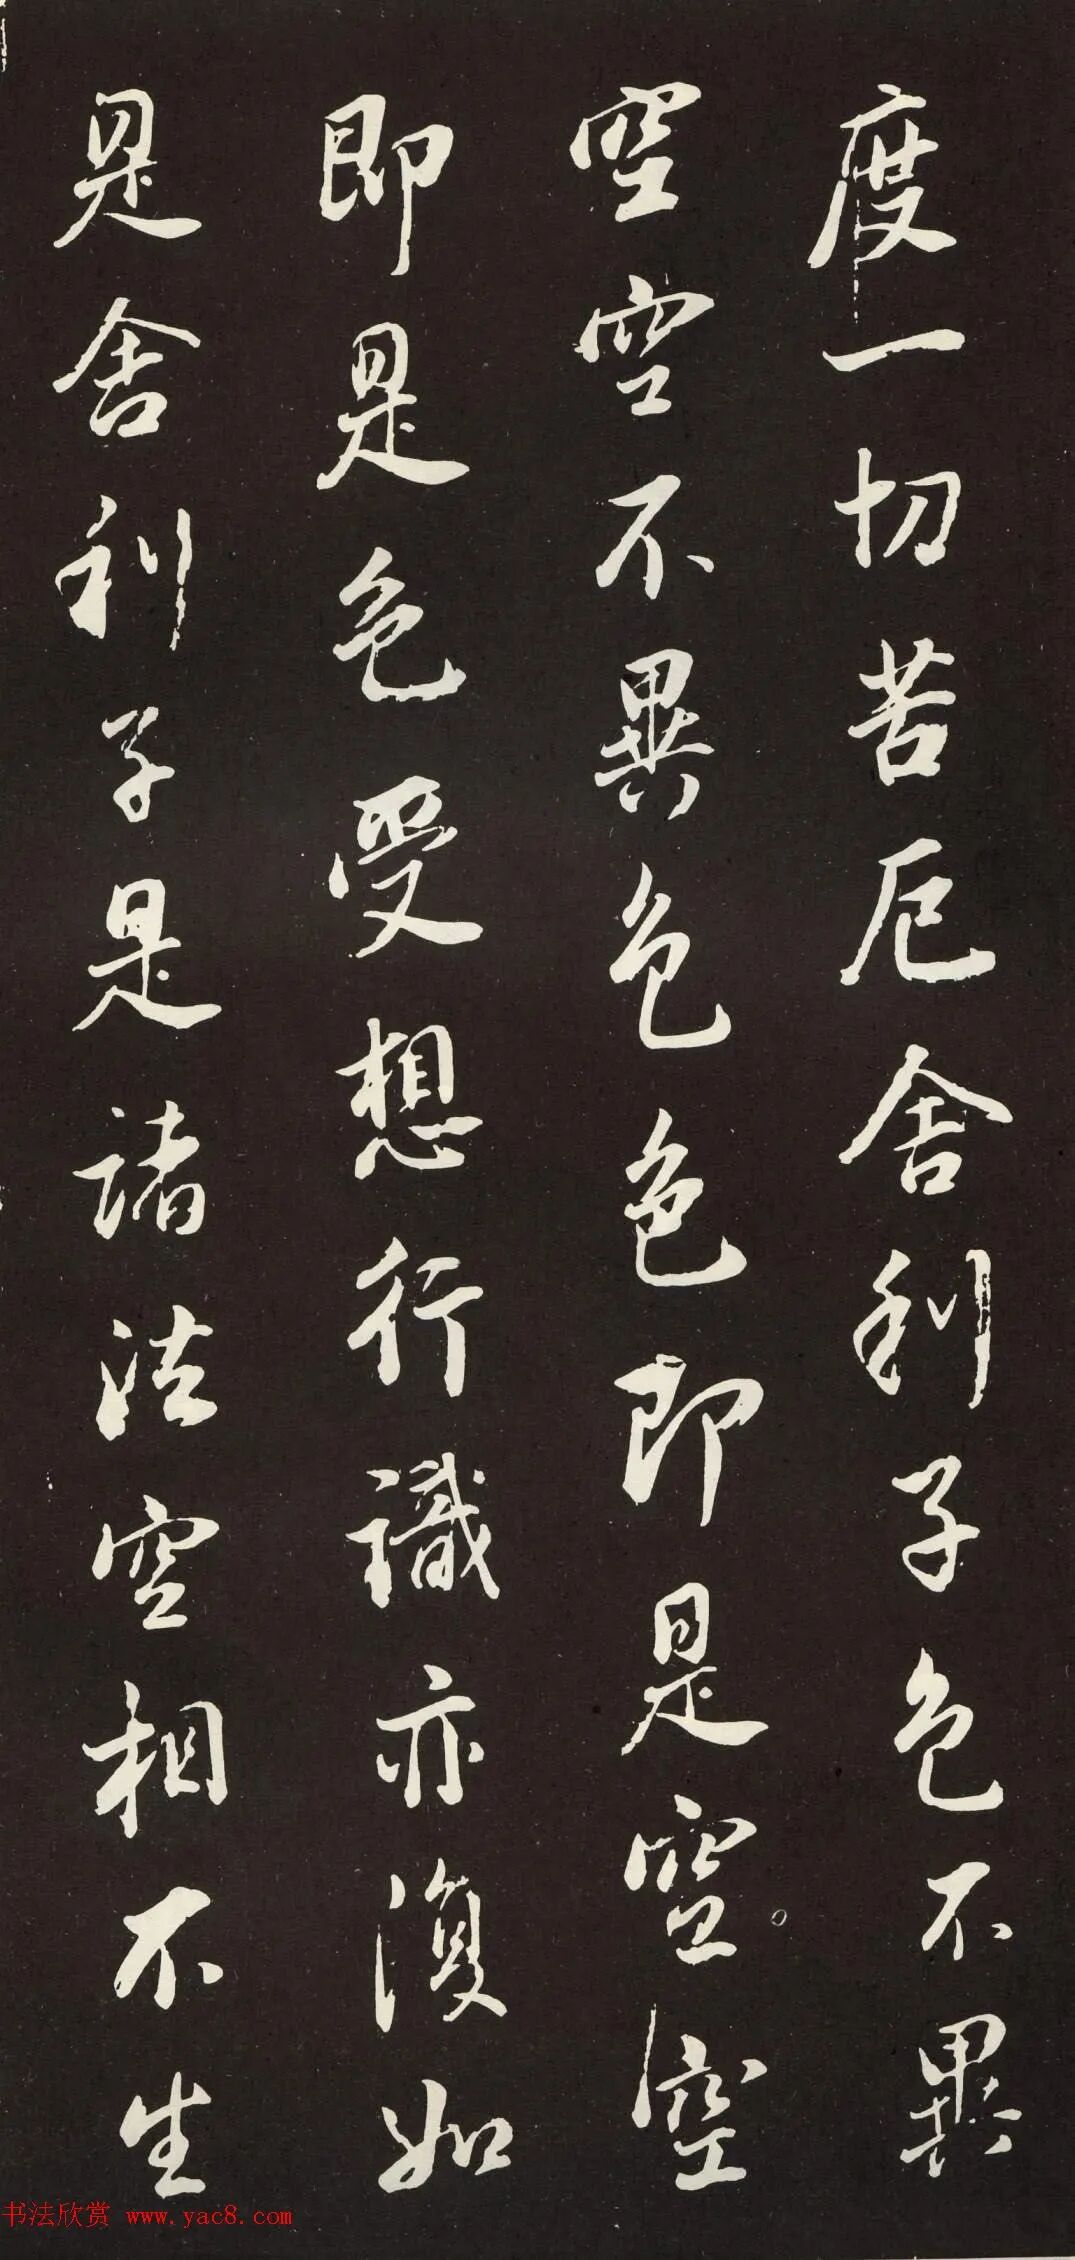 度一切苦厄舍利子色不異
空空不異色色即是空空
即是色受想行識亦復如
是舍利子是諸法空相不生
书法欣赏 www.yac8.com